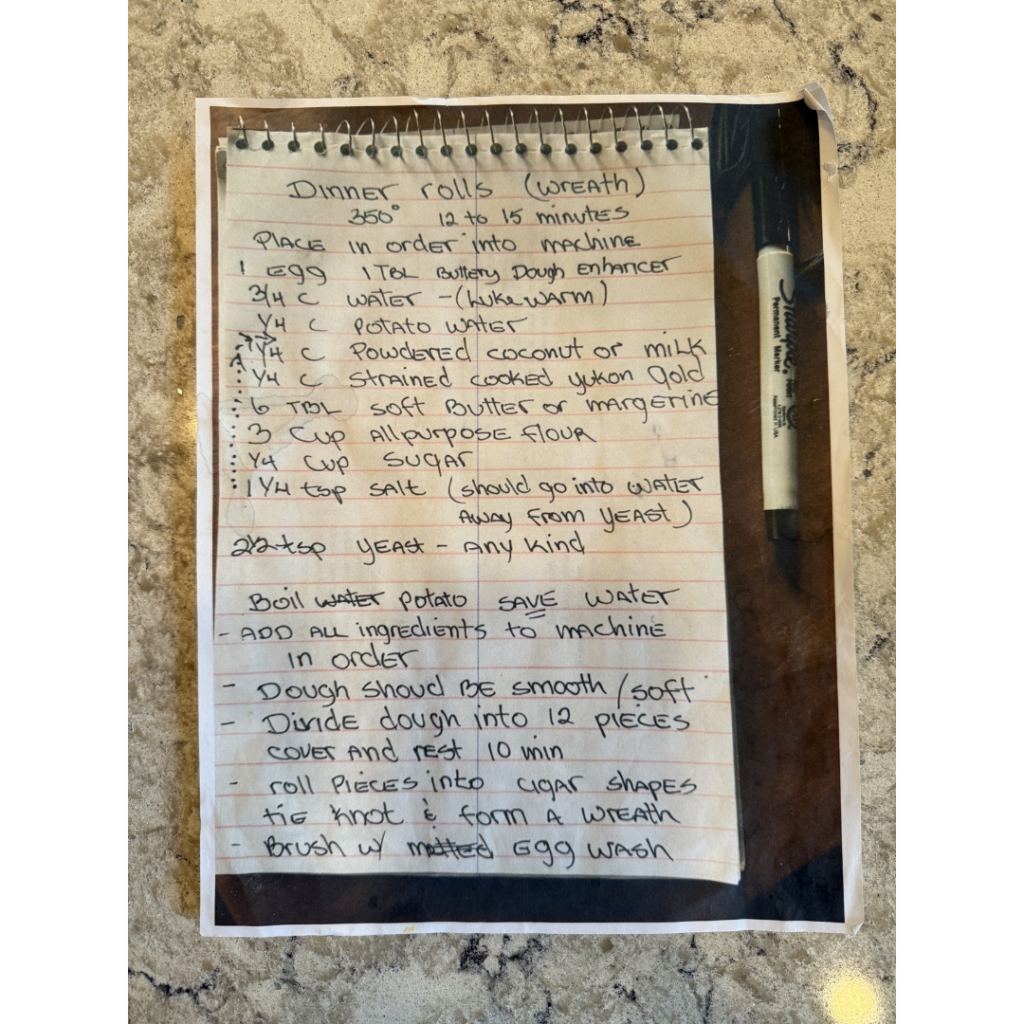 Dinner rolls (wreath)
350° 12 to 15 minutes
Place in order into machine
1 Egg 1 TBL Buttery Dough Enhancer
3/4 C water - (Lukewarm)
1/4 C Potato water
1/4 C Powdered coconut or milk
1/4 C Strained cooked yukon gold
6 TBL soft Butter or margerine
3 Cup Allpurpose flour
1/4 Cup Sugar
1 1/4 tsp salt (should go into water
away from yeast)
2 1/2 tsp yeast - Any kind
Boil water potato save water
- ADD ALL ingredients to machine
in order
- Dough shoud BE smooth / soft
- Divide dough into 12 pieces
cover and rest 10 min
- roll Pieces into cigar shapes
tie knot & form a wreath
- Brush w/ Egg wash
Sharpie.
Permanent Marker